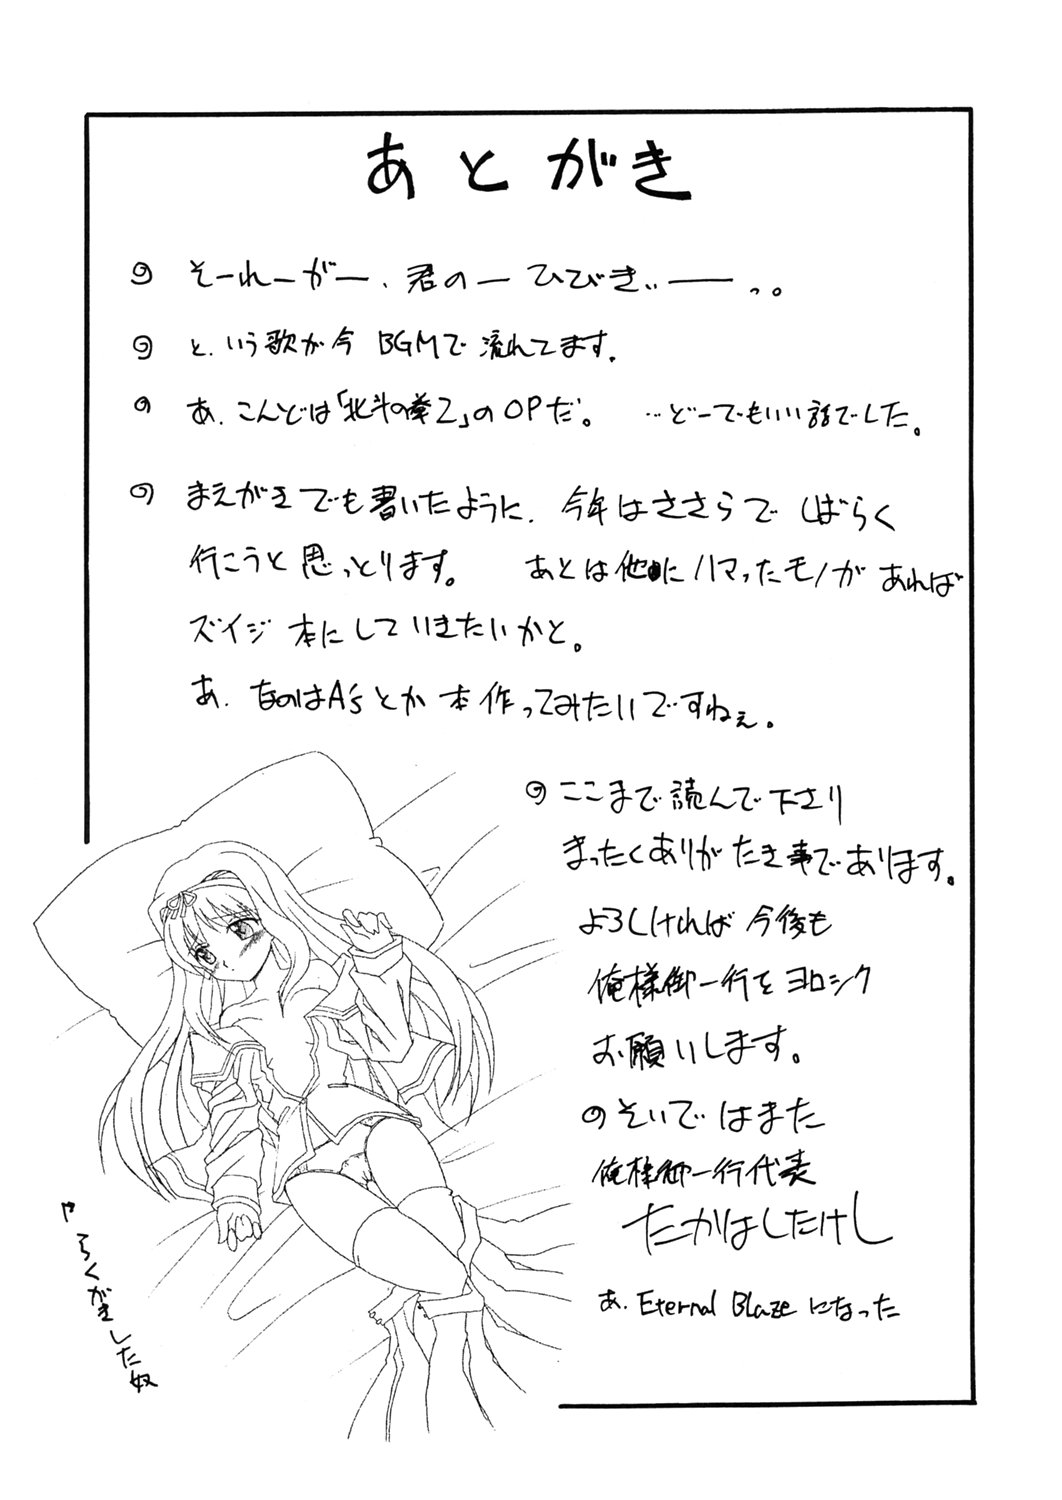 あとがき
そーれーがー、君のーひびきぃーーっ。
と、いう歌が今 BGMで流れてます。
あ、こんどは「北斗の拳2」のOPだ。 …どーでもいい話でした。
まえがきでも書いたように、今年はささらでしばらく
行こうと思っとります。 あとは他にハマったモノがあれば
ズイジ本にしていきたいかと。
あ、なのはA'sとか本作ってみたいですねぇ。
ここまで読んで下さり
まったくありがたき事であります。
よろしければ今後も
俺様御一行をヨロシク
お願いします。
そいではまた
俺様御一行代表
たかはしたけし
あ、Eternal Blazeになった
らくがきした奴